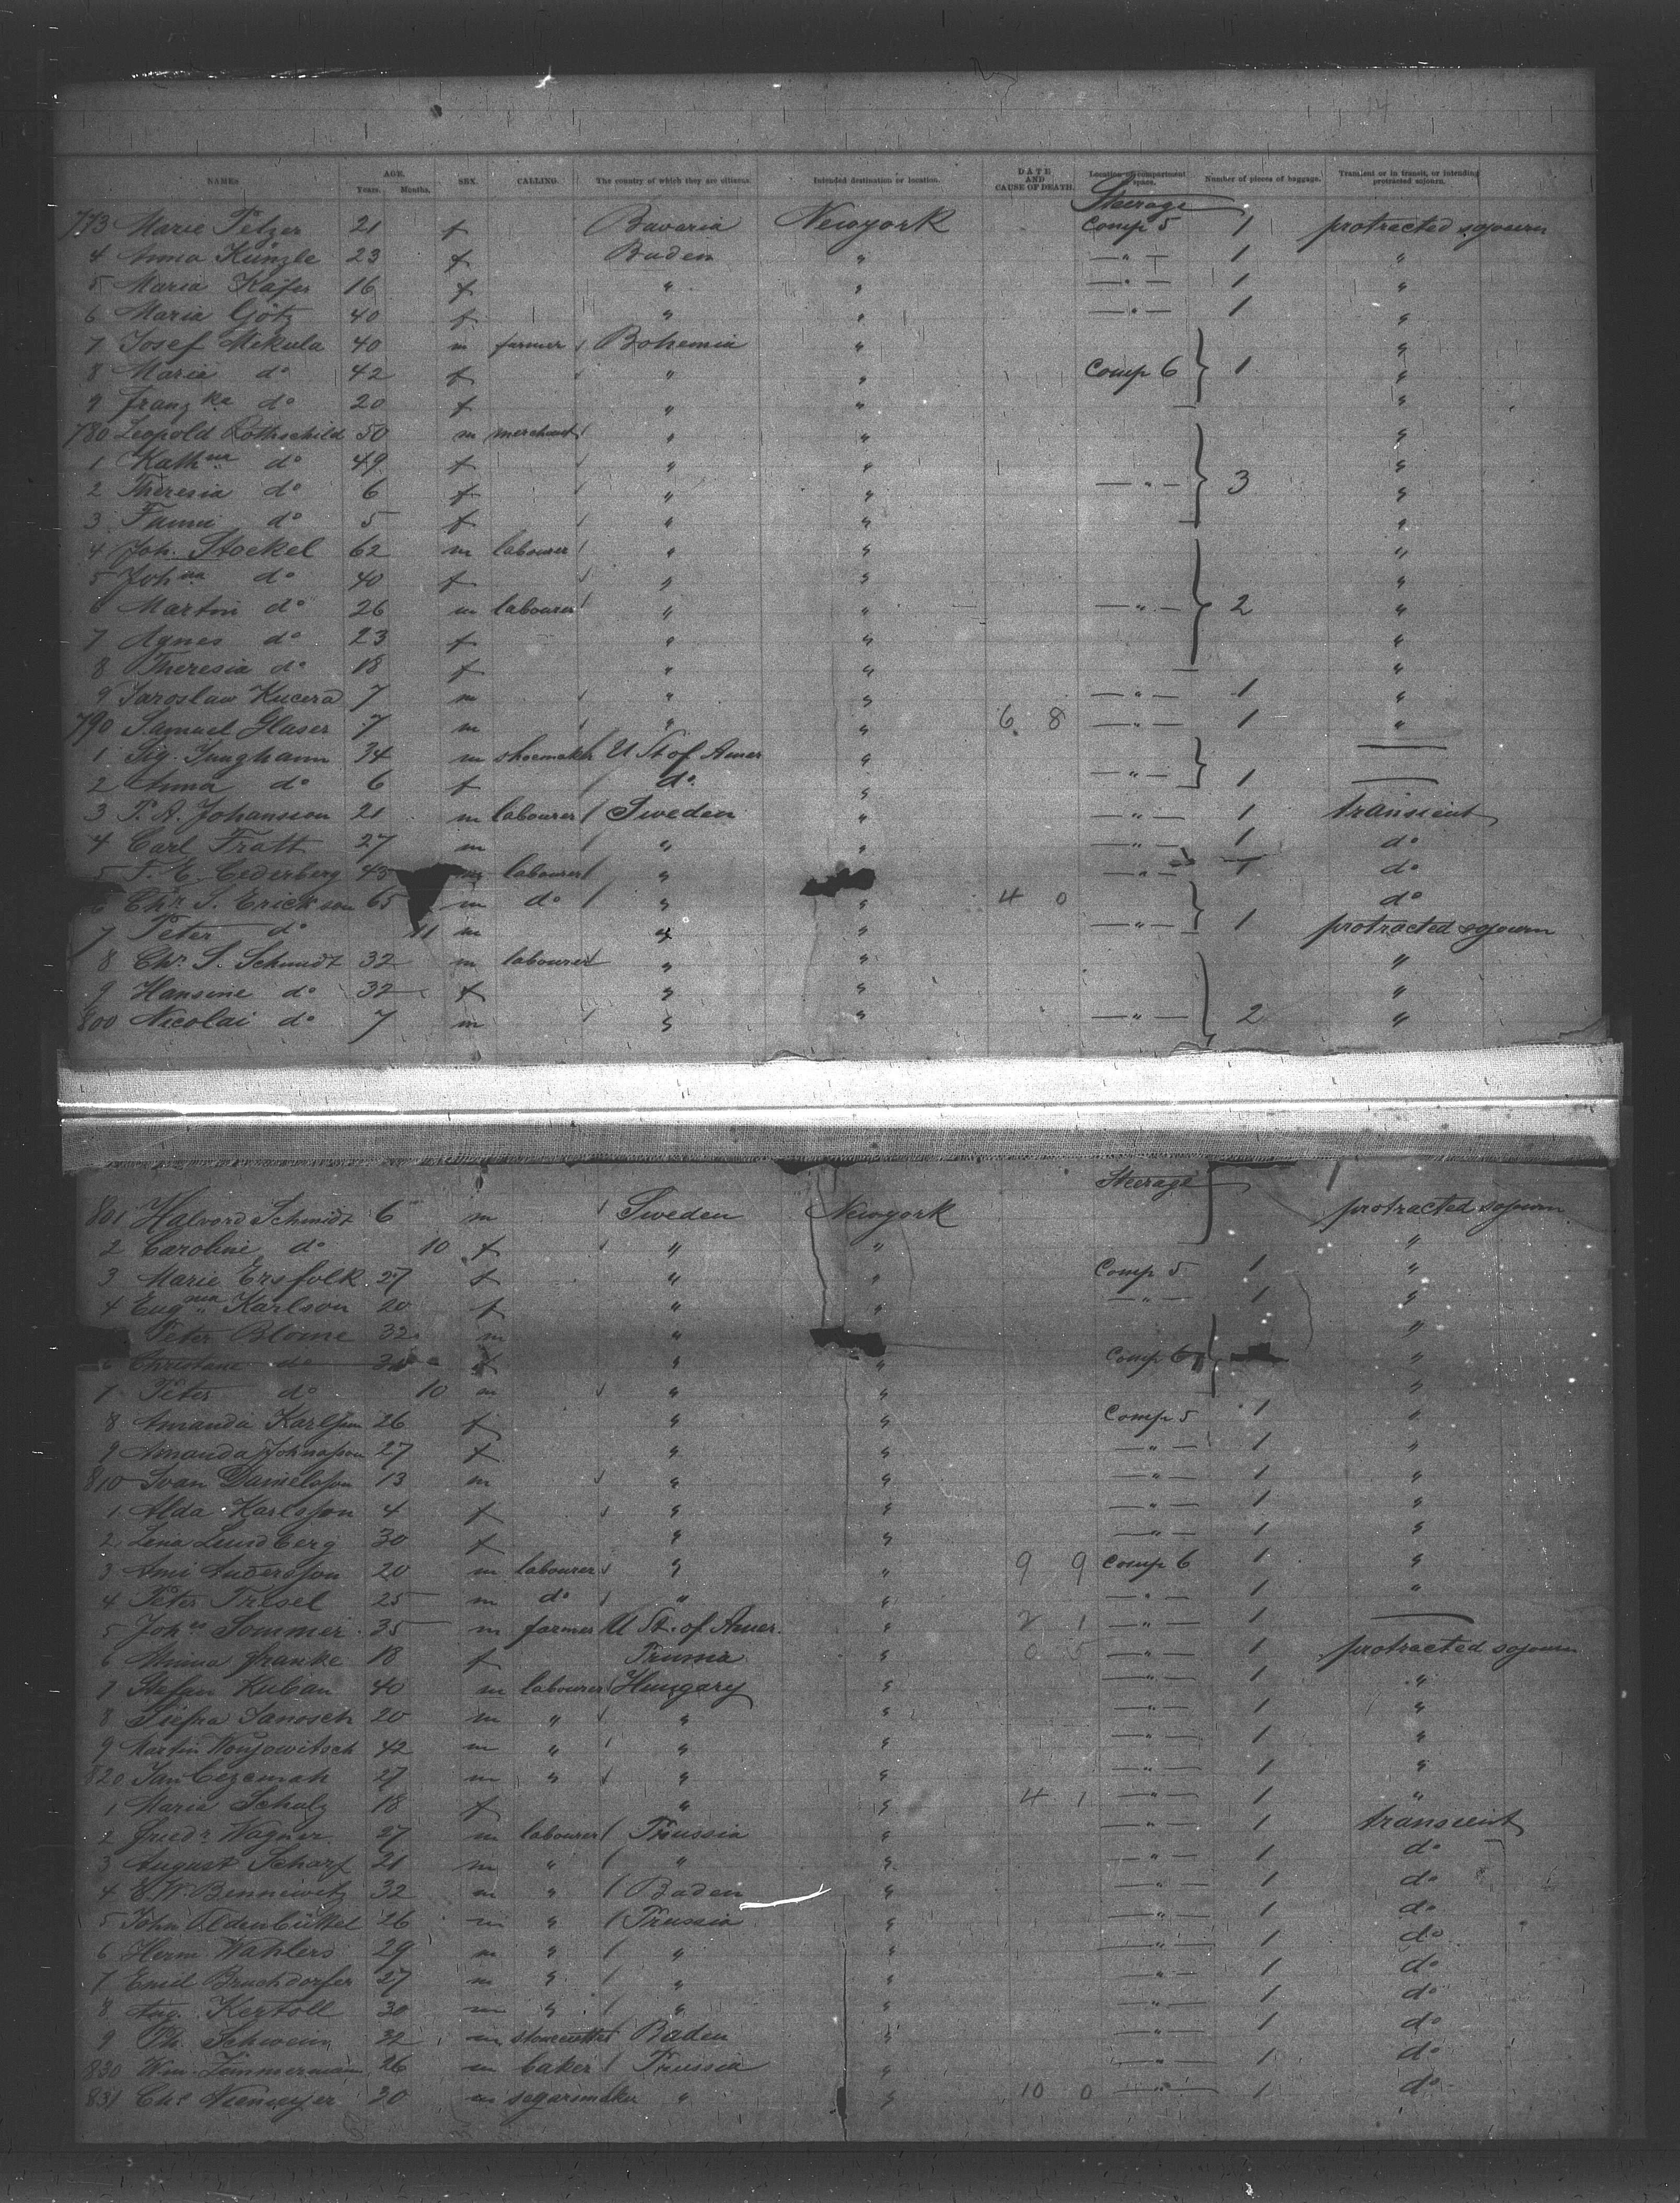 NAMES AGE. Years. Months. SEX. CALLING. The country of which they are citizens. Intended destination or location. DATE AND CAUSE OF DEATH. Location of compartment space. Number of pieces of baggage. Transient or in transit, or intending protracted sojourn.
Steerage
773 Marie Pelzer 21 f Bavaria Newyork Comp 5 1 protracted sojourn
4 Anna Künzle 23 f Baden " — " — 1 "
5 Maria Käfer 16 f " " — " — 1 "
6 Maria Götz 40 f " " — " — 1 "
7 Josef Mekula 40 m farmer Bohemia " "
8 Maria do 42 f " " Comp 6 1 "
9 Franzka do 20 f " " "
780 Leopold Rothschild 50 m merchant " " "
1 Kathne do 49 f " " "
2 Theresia do 6 f " " — " — 3 "
3 Fanni do 5 f " " "
4 Joh. Stockel 62 m labourer " " "
5 Johna do 40 f " " "
6 Martin do 26 m labourer " " — " — 2 "
7 Agnes do 23 f " " "
8 Theresia do 18 f " " "
9 Jaroslaw Kucera 7 m " " — " — 1 "
790 Samuel Glaser 7 m " " 6 8 — " — 1 "
1 Sig. Junghann 34 m shoemakr U St of Amer " —
2 Anna do 6 f do " — " — 1 —
3 P. A. Johansson 21 m labourer Sweden " — " — 1 transient
4 Carl Fratt 27 m " " — " — 1 do
5 F. E. Cederberg 45 m labourer " — " — 1 do
6 Chr. S. Erickson 65 m do " " 4 0 do
7 Peter do 11 m " " — " — 1 protracted sojourn
8 Chr. S. Schmidt 32 m labourer " " "
9 Hansine do 32 f " " "
800 Nicolai do 7 m " " — " — 2 "
Steerage
801 Halvord Schmidt 6 m Sweden Newyork protracted sojourn
2 Caroline do 10 f " " "
3 Marie Ersfolk 27 f " " Comp 5 1 "
4 Eugnia Karlson 20 f " " — " — 1 "
Peter Blome 32 m " "
6 Christane do 30 f " " Comp 6 "
7 Peter do 10 m " " "
8 Amanda Karlsson 26 f " " Comp 5 1 "
9 Amanda Johnasson 27 f " " — " — 1 "
810 Svan Danielsson 13 m " " — " — 1 "
1 Alda Karlsson 4 f " " — " — 1 "
2 Lina Lundberg 30 f " " — " — 1 "
3 Ami Andersson 20 m labourer " " 9 9 Comp 6 1 "
4 Peter Trisel 25 m do " " — " — 1 "
5 Johns Sommer 35 m farmer U St. of Amer. " 2 1 — " — 1 —
6 Minna Franke 18 f Prussia " 0 5 — " — 1 protracted sojourn
7 Stefan Kuban 40 m labourer Hungary " — " — 1 "
8 Janosch 20 m " " " — " — 1 "
9 Martin Wonjowitsch 42 m " " " — " — 1 "
820 Jan 27 m " " " — " — 1 "
1 Maria Schulz 18 f " " 4 1 — " — 1 "
2 Friedr. Wagner 27 m labourer Prussia " — " — 1 transient
3 August Scharf 21 m " " " — " — 1 do
4 E. W. Bennewitz 32 m " Baden " — " — 1 do
5 John Oldenbüttel 26 m " Prussia " — " — 1 do
6 Herm. Wahlers 29 m " " " — " — 1 do
7 Emil Bruchdorfer 27 m " " " — " — 1 do
8 Aug. Kertoll 30 m " " " — " — 1 do
9 Ph. Schwein 32 m stonecutter Baden " — " — 1 do
830 Wm. Zimmermann 26 m baker Prussia " — " — 1 do
831 Chs Niemeyer 30 m segarmaker " " 10 0 — " — 1 do